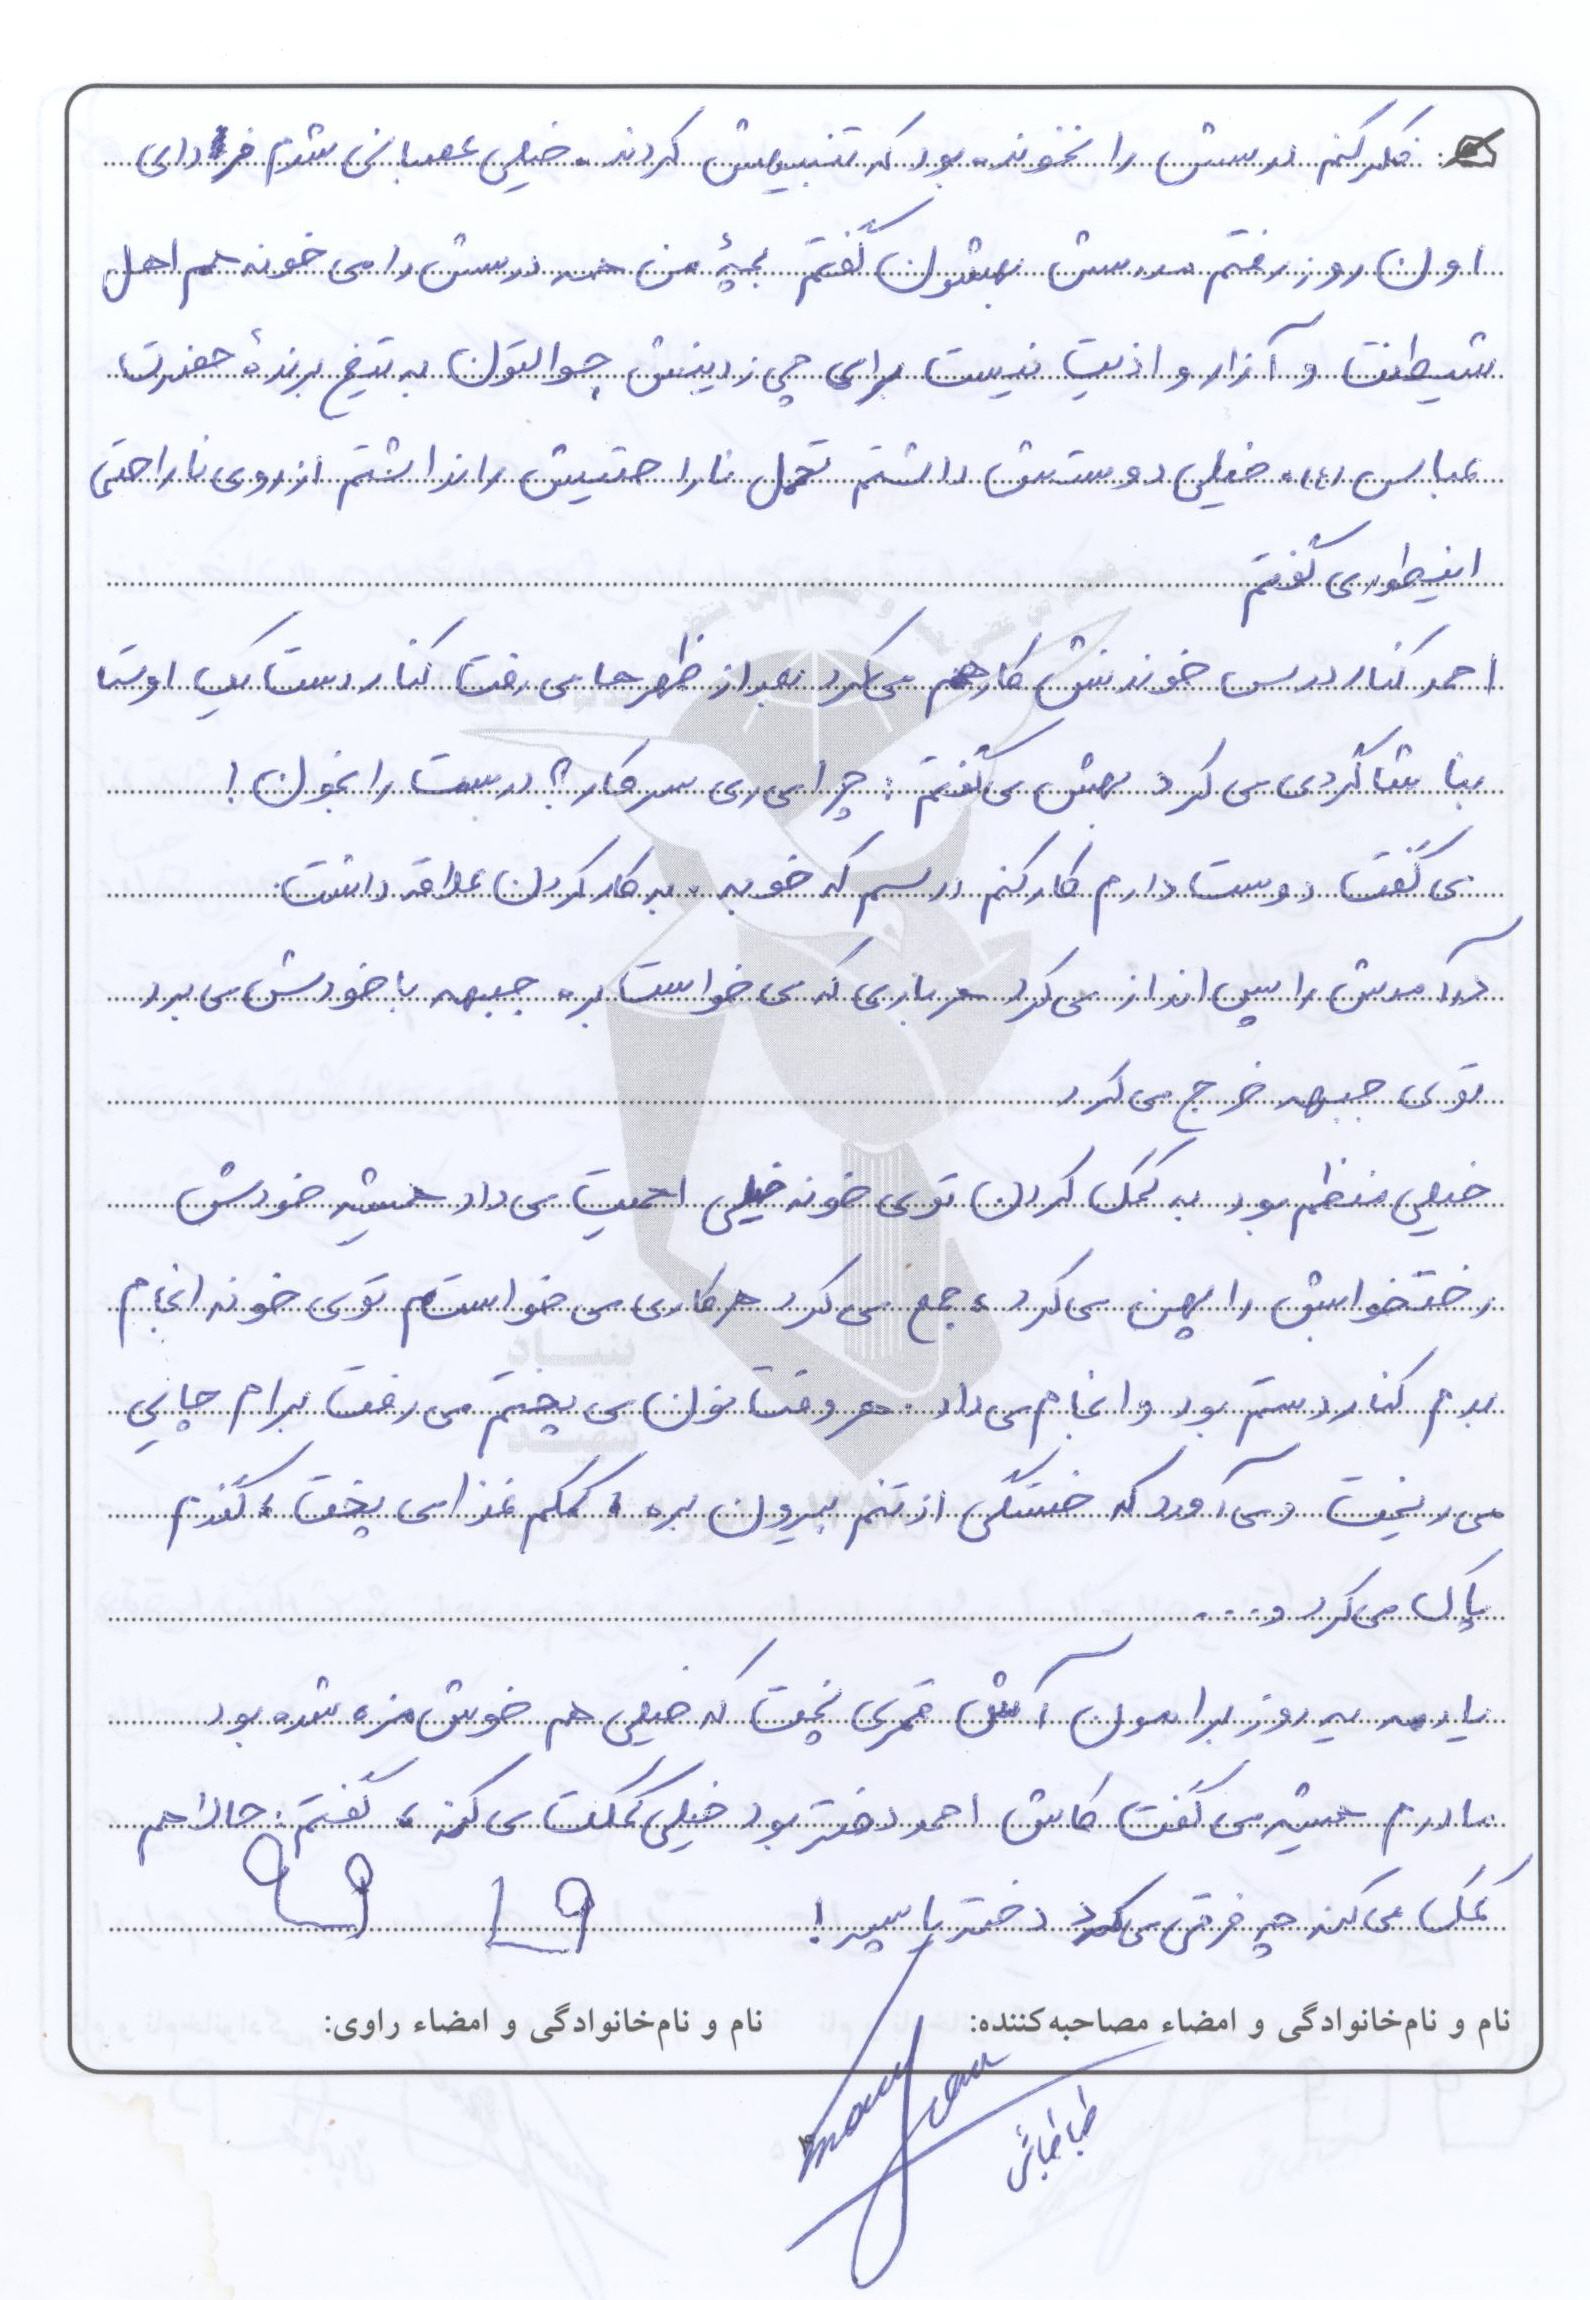 فکر کنم درسش را نخونده بود که تنبیهش کردند. خیلی عصبانی شدم فردای
اون روز رفتم مدرسش بهشون گفتم بچهٔ من همه درسش را می خونه هم اهل
شیطنت و آزار و اذیت نیست برای چی زدینش چوالتون به تیغ برندهٔ حضرت
عباس (ع). خیلی دوستش داشتم تحمل ناراحتیش را نداشتم از روی ناراحتی
اینطوری گفتم
احمد کنار درس خوندنش کار هم می کرد بعد از ظهرها می رفت کنار دست یک اوستا
بنا شاگردی می کرد بهش می گفتم: چرا می ری سرکار؟ درست را بخون!
می گفت دوست دارم کار کنم درسم که خوبه، به کار کردن علاقه داشت.
درآمدش را پس انداز می کرد هر باری که می خواست بره جبهه با خودش می برد
توی جبهه خرج می کرد
خیلی منظم بود به کمک کردن توی خونه خیلی اهمیت می داد همیشه خودش
رختخوابش را پهن می کرد، جمع می کرد هر کاری می خواستم توی خونه انجام
بدم کنار دستم بود و انجام می داد. هر وقت نون می پختم می رفت برام چایی
می ریخت و می آورد که خستگی از تنم بیرون بره، کمکم غذا می پخت، گندم
پاک می کرد و....
یادمه یه روز برامون آش قمری پخت که خیلی هم خوش مزه شده بود
مادرم همیشه می گفت کاش احمد دختر بود خیلی کمکت می کنه، گفتم: حالا هم
کمک می کنه چه فرقی می کرد دختر یا پسر!
نام و نام‌خانوادگی و امضاء مصاحبه‌کننده: نام و نام‌خانوادگی و امضاء راوی:
طباطبائی
بنیاد
شهید